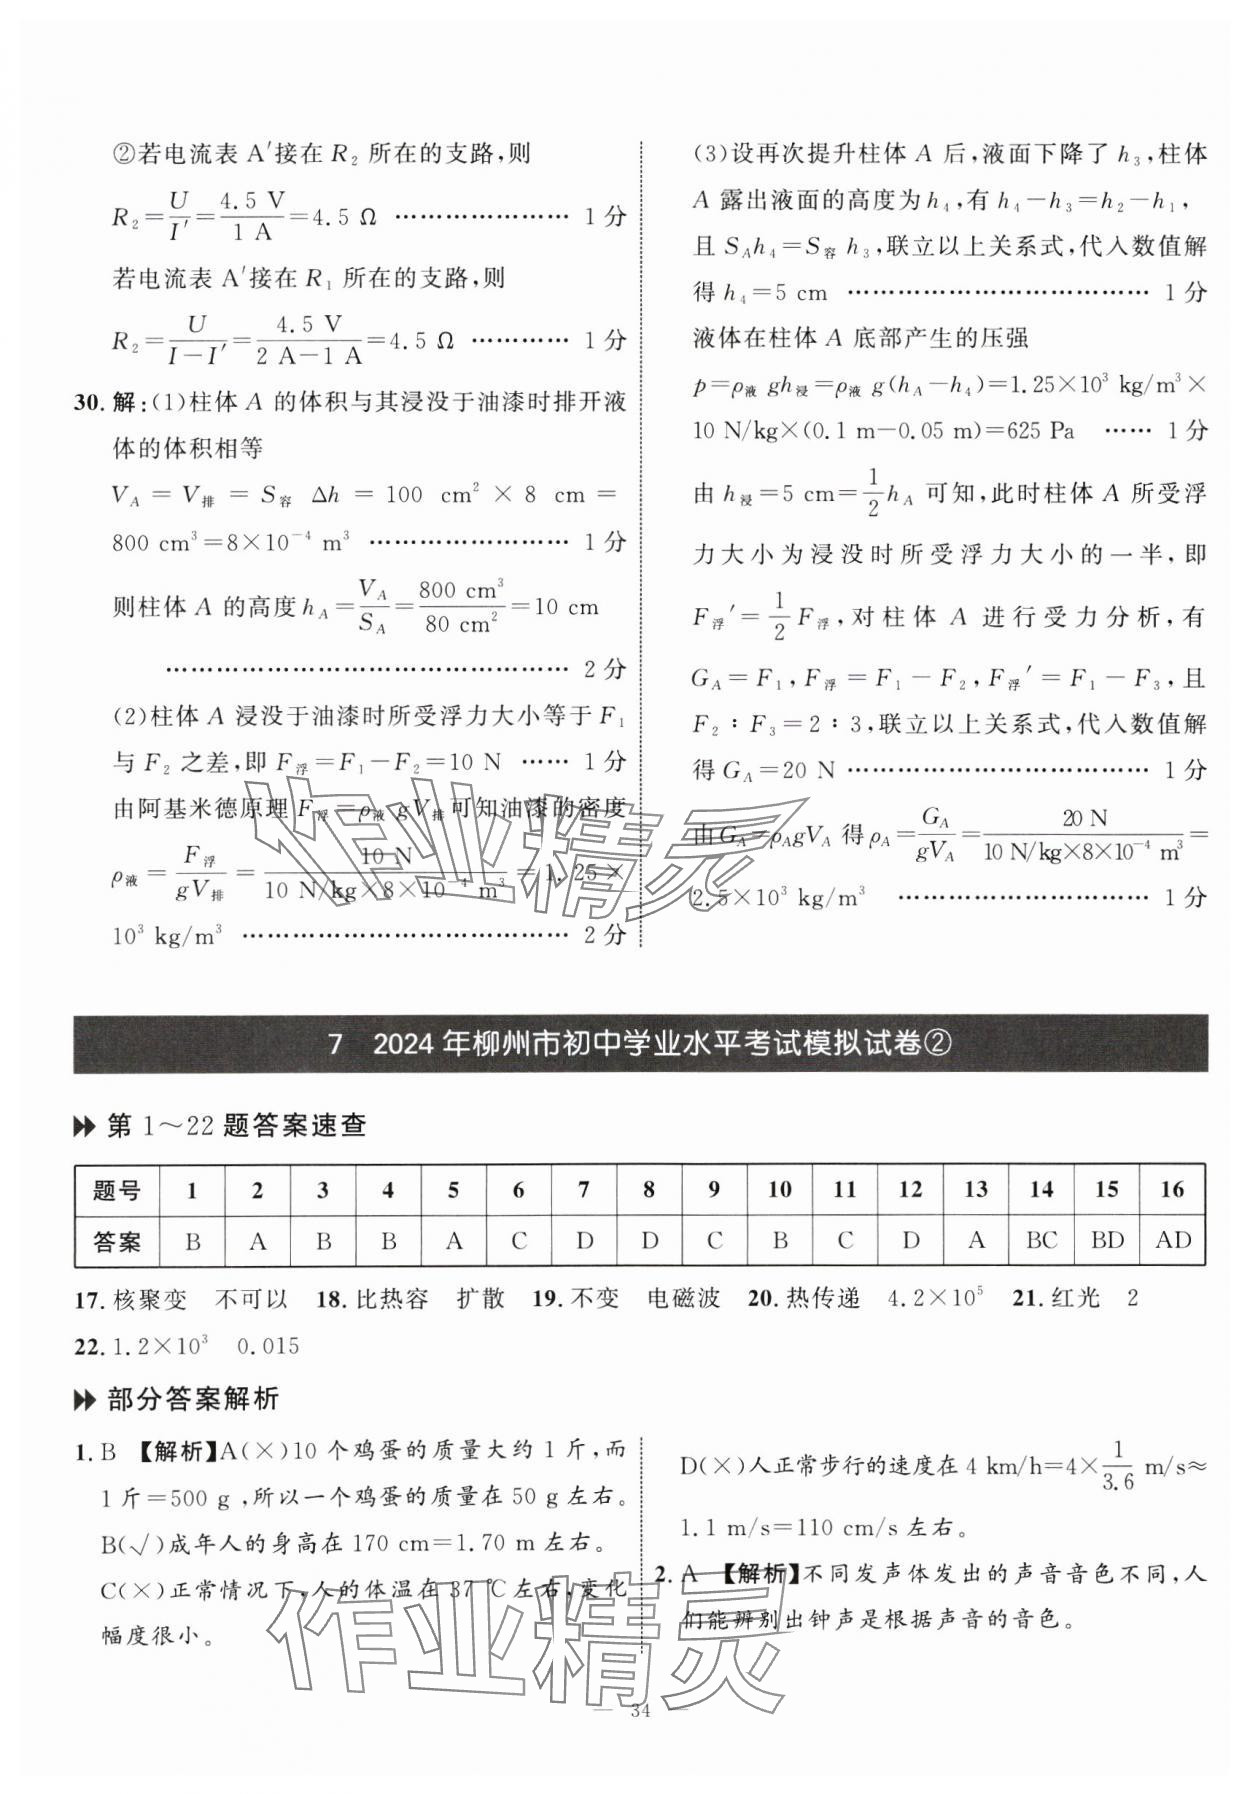 ②若电流表 A′接在 R₂ 所在的支路,则
R₂=U/I′=4.5 V/1 A=4.5 Ω ………………… 1 分
若电流表 A′接在 R₁ 所在的支路,则
R₂=U/(I−I′)=4.5 V/(2 A−1 A)=4.5 Ω ………… 1 分
30. 解:(1)柱体 A 的体积与其浸没于油漆时排开液
体的体积相等
V_A = V_排 = S_容 Δh = 100 cm² × 8 cm =
800 cm³=8×10⁻⁴ m³ …………………… 1 分
则柱体 A 的高度 h_A=V_A/S_A=800 cm³/80 cm²=10 cm
………………………………………… 2 分
(2)柱体 A 浸没于油漆时所受浮力大小等于 F₁
与 F₂ 之差,即 F_浮=F₁−F₂=10 N …… 1 分
由阿基米德原理 F_浮=ρ_液 gV_排 可知油漆的密度
ρ_液=F_浮/(gV_排)=10 N/(10 N/kg×8×10⁻⁴ m³)=1.25×
10³ kg/m³ ………………………………… 2 分
(3)设再次提升柱体 A 后,液面下降了 h₃,柱体
A 露出液面的高度为 h₄,有 h₄−h₃=h₂−h₁,
且 S_A h₄=S_容 h₃,联立以上关系式,代入数值解
得 h₄=5 cm ……………………………… 1 分
液体在柱体 A 底部产生的压强
p=ρ_液 gh_浸=ρ_液 g(h_A−h₄)=1.25×10³ kg/m³×
10 N/kg×(0.1 m−0.05 m)=625 Pa …… 1 分
由 h_浸=5 cm=1/2 h_A 可知,此时柱体 A 所受浮
力大小为浸没时所受浮力大小的一半,即
F_浮′=1/2 F_浮,对柱体 A 进行受力分析,有
G_A=F₁,F_浮=F₁−F₂,F_浮′=F₁−F₃,且
F₂∶F₃=2∶3,联立以上关系式,代入数值解
得 G_A=20 N ……………………………… 1 分
由 G_A=ρ_A gV_A 得 ρ_A=G_A/(gV_A)=20 N/(10 N/kg×8×10⁻⁴ m³)=
2.5×10³ kg/m³ ………………………… 1 分
7 2024 年柳州市初中学业水平考试模拟试卷②
第 1～22 题答案速查
题号 1 2 3 4 5 6 7 8 9 10 11 12 13 14 15 16
答案 B A B B A C D D C B C D A BC BD AD
17. 核聚变 不可以 18. 比热容 扩散 19. 不变 电磁波 20. 热传递 4.2×10⁵ 21. 红光 2
22. 1.2×10³ 0.015
部分答案解析
1. B 【解析】A(×)10 个鸡蛋的质量大约 1 斤,而
1 斤=500 g,所以一个鸡蛋的质量在 50 g 左右。
B(√)成年人的身高在 170 cm=1.70 m 左右。
C(×)正常情况下,人的体温在 37 ℃左右,变化
幅度很小。
D(×)人正常步行的速度在 4 km/h=4×1/3.6 m/s≈
1.1 m/s=110 cm/s 左右。
2. A 【解析】不同发声体发出的声音音色不同,人
们能辨别出钟声是根据声音的音色。
作业精灵
作业精灵
— 34 —